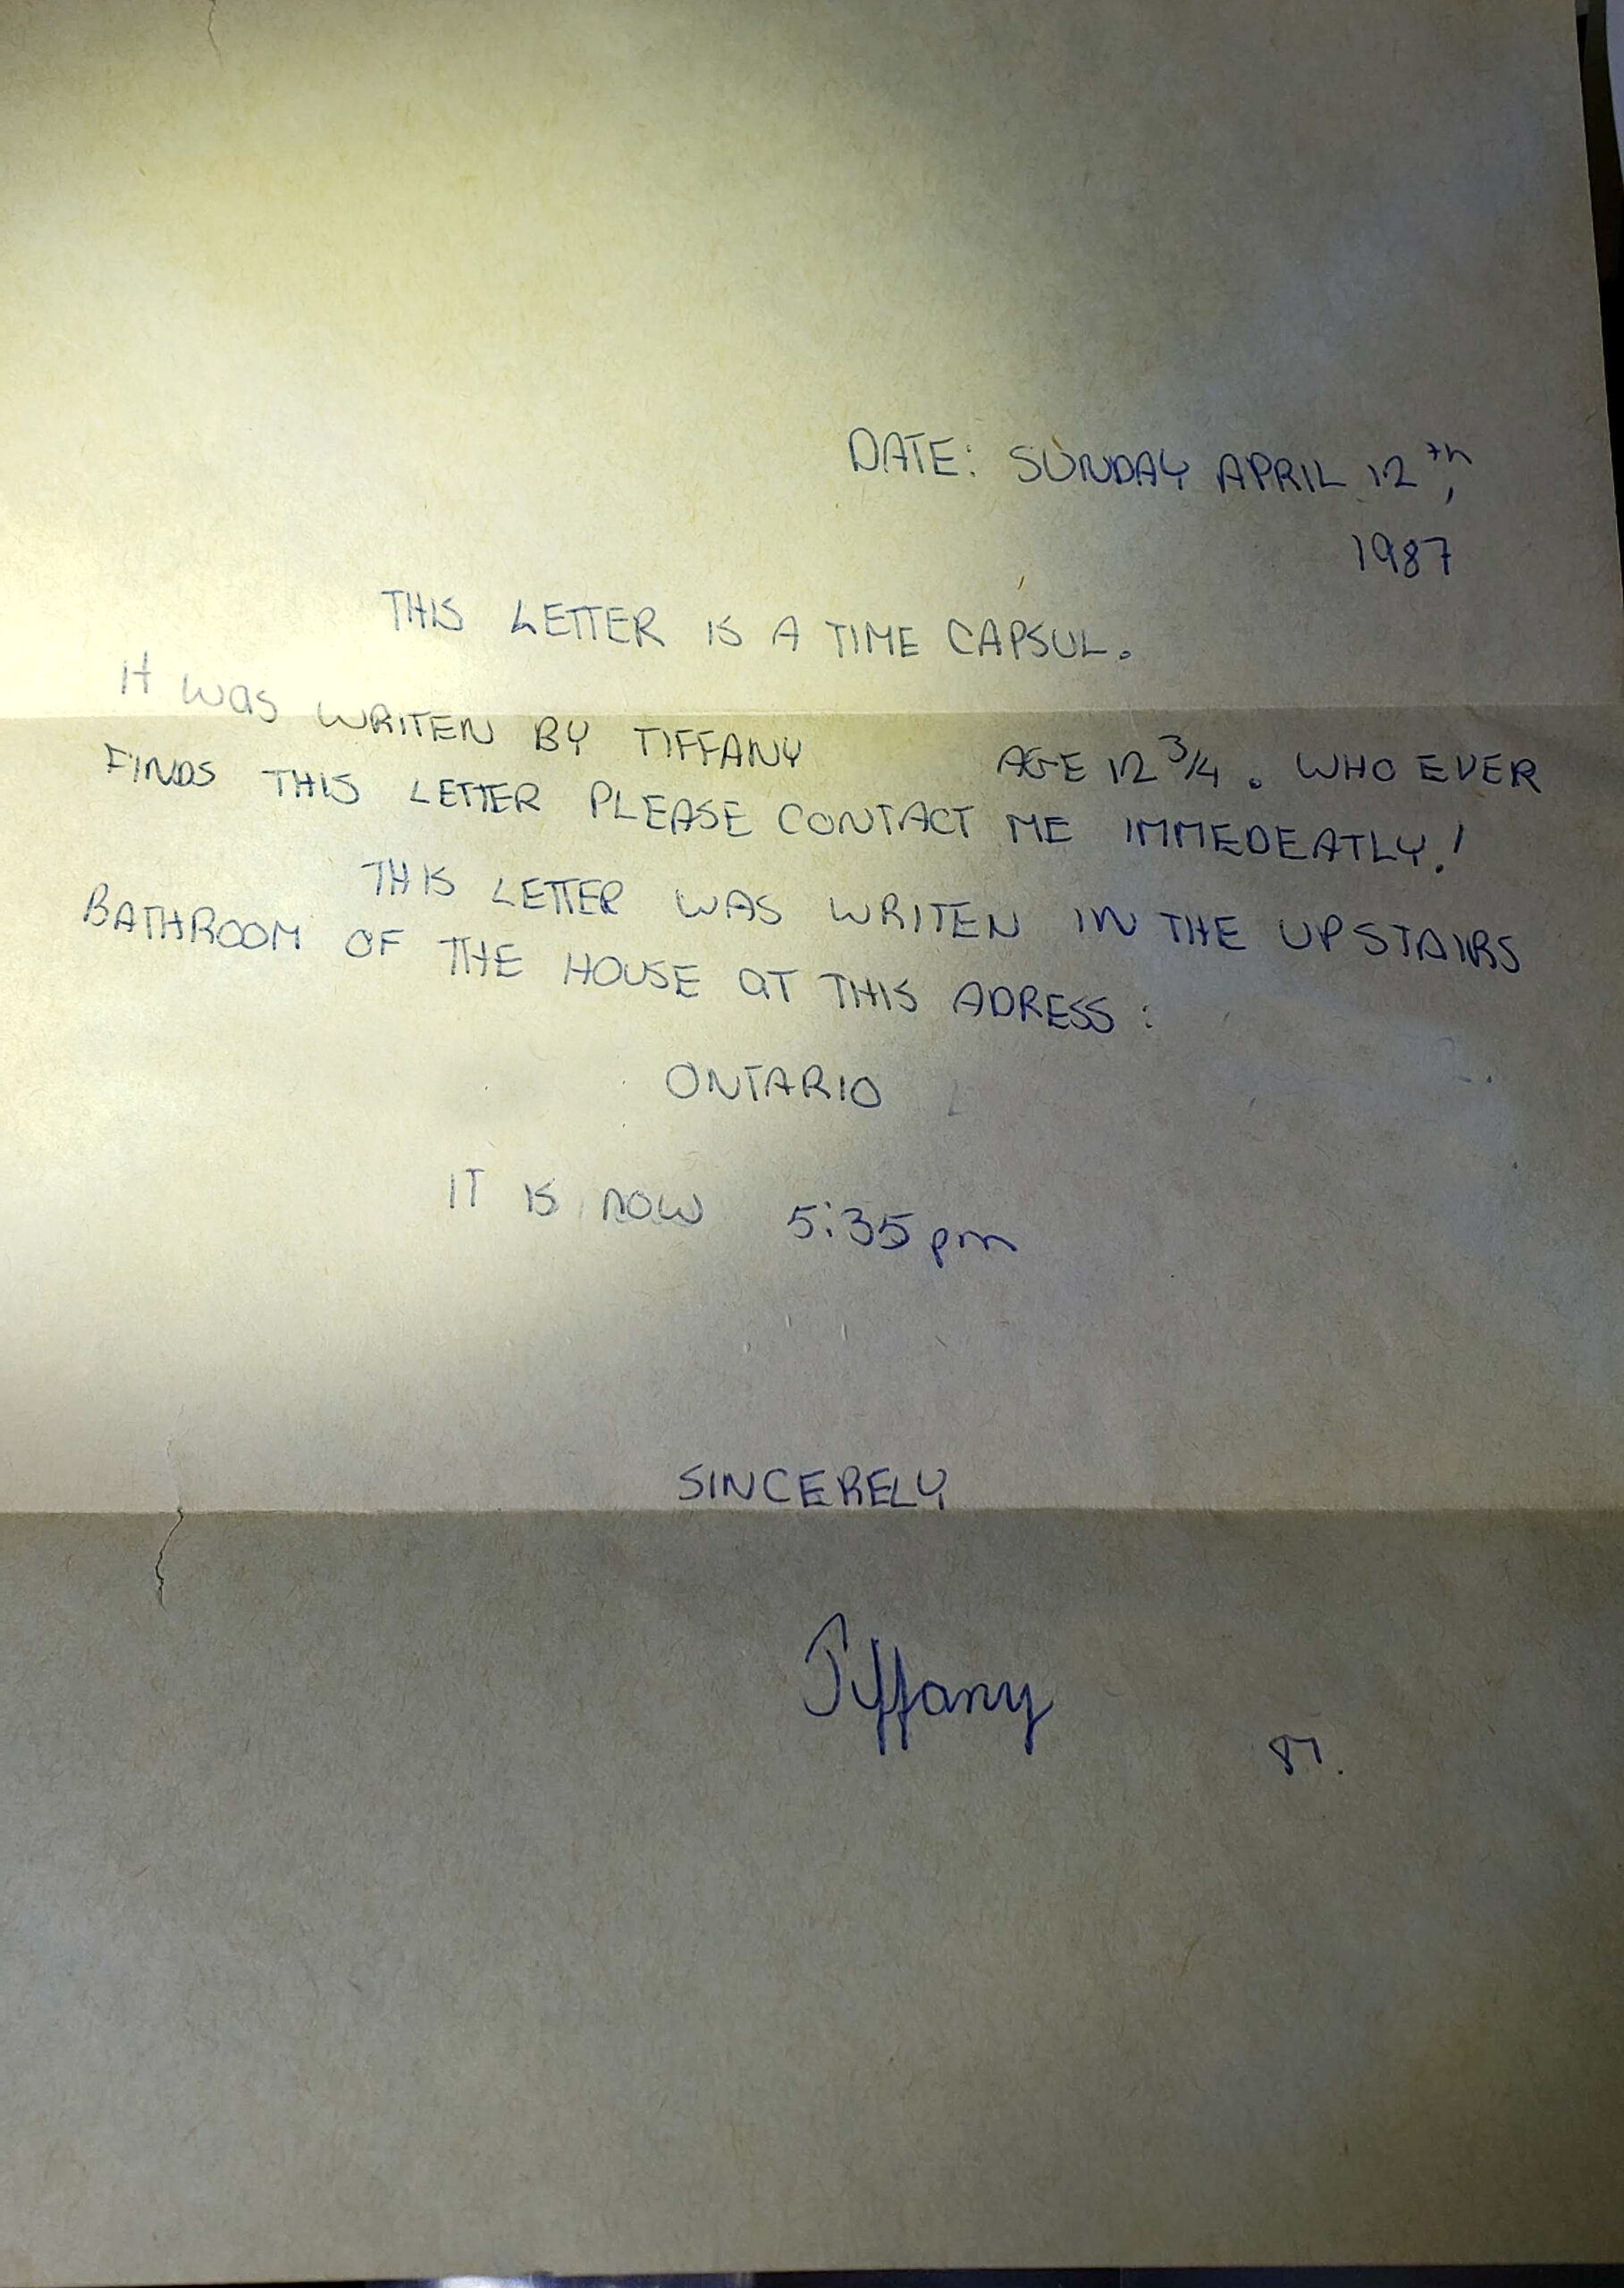 DATE: SUNDAY APRIL 12th,
1987
THIS LETTER IS A TIME CAPSUL.
It was WRITEN BY TIFFANY AGE 12 3/4. WHO EVER
FINDS THIS LETTER PLEASE CONTACT ME IMMEDEATLY!
THIS LETTER WAS WRITEN IN THE UPSTAIRS
BATHROOM OF THE HOUSE AT THIS ADRESS:
ONTARIO
IT IS NOW 5:35pm
SINCERELY
Tiffany
87.